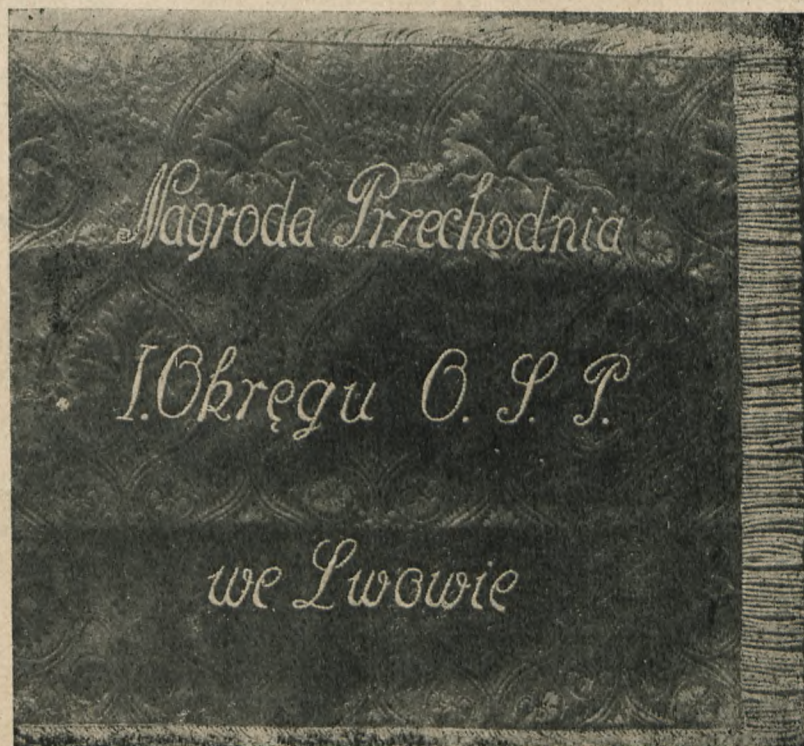 Nagroda Przechodnia
I. Okręgu O. S. P.
we Lwowie